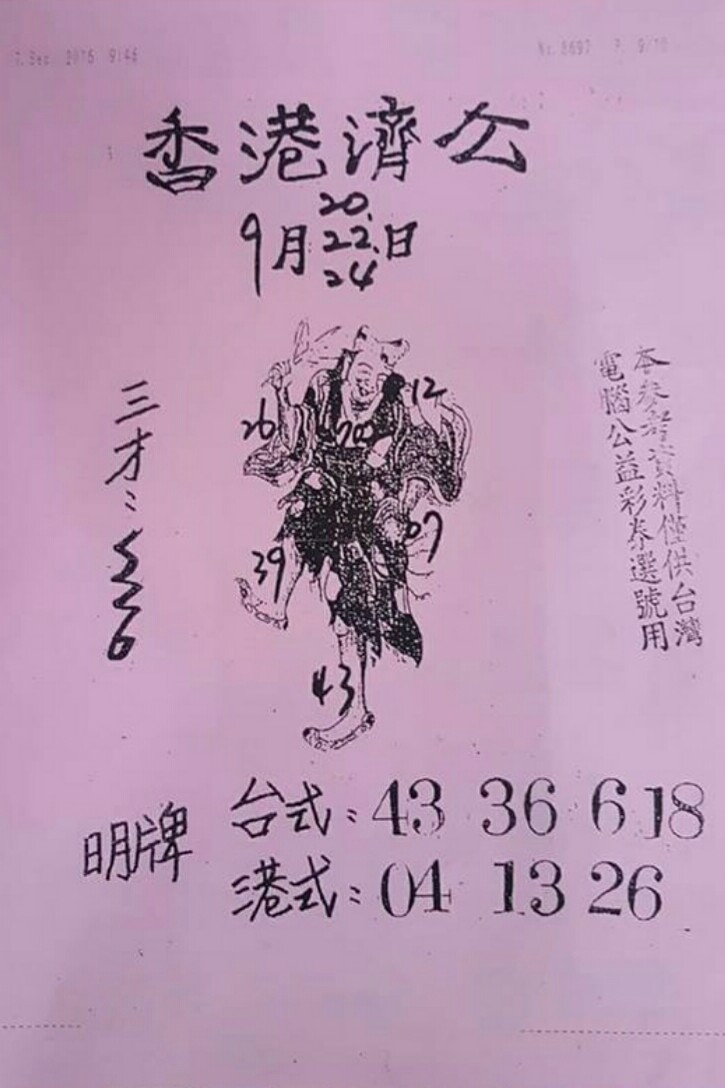 7.Sep. 2015 9:46
Nr.8697 P. 9/10
香港濟公
9月20.22.24日
三才：
26
12
39
07
43
本參考資料僅供台灣
電腦公益彩券選號用
明牌
台式：43 36 6 18
港式：04 13 26